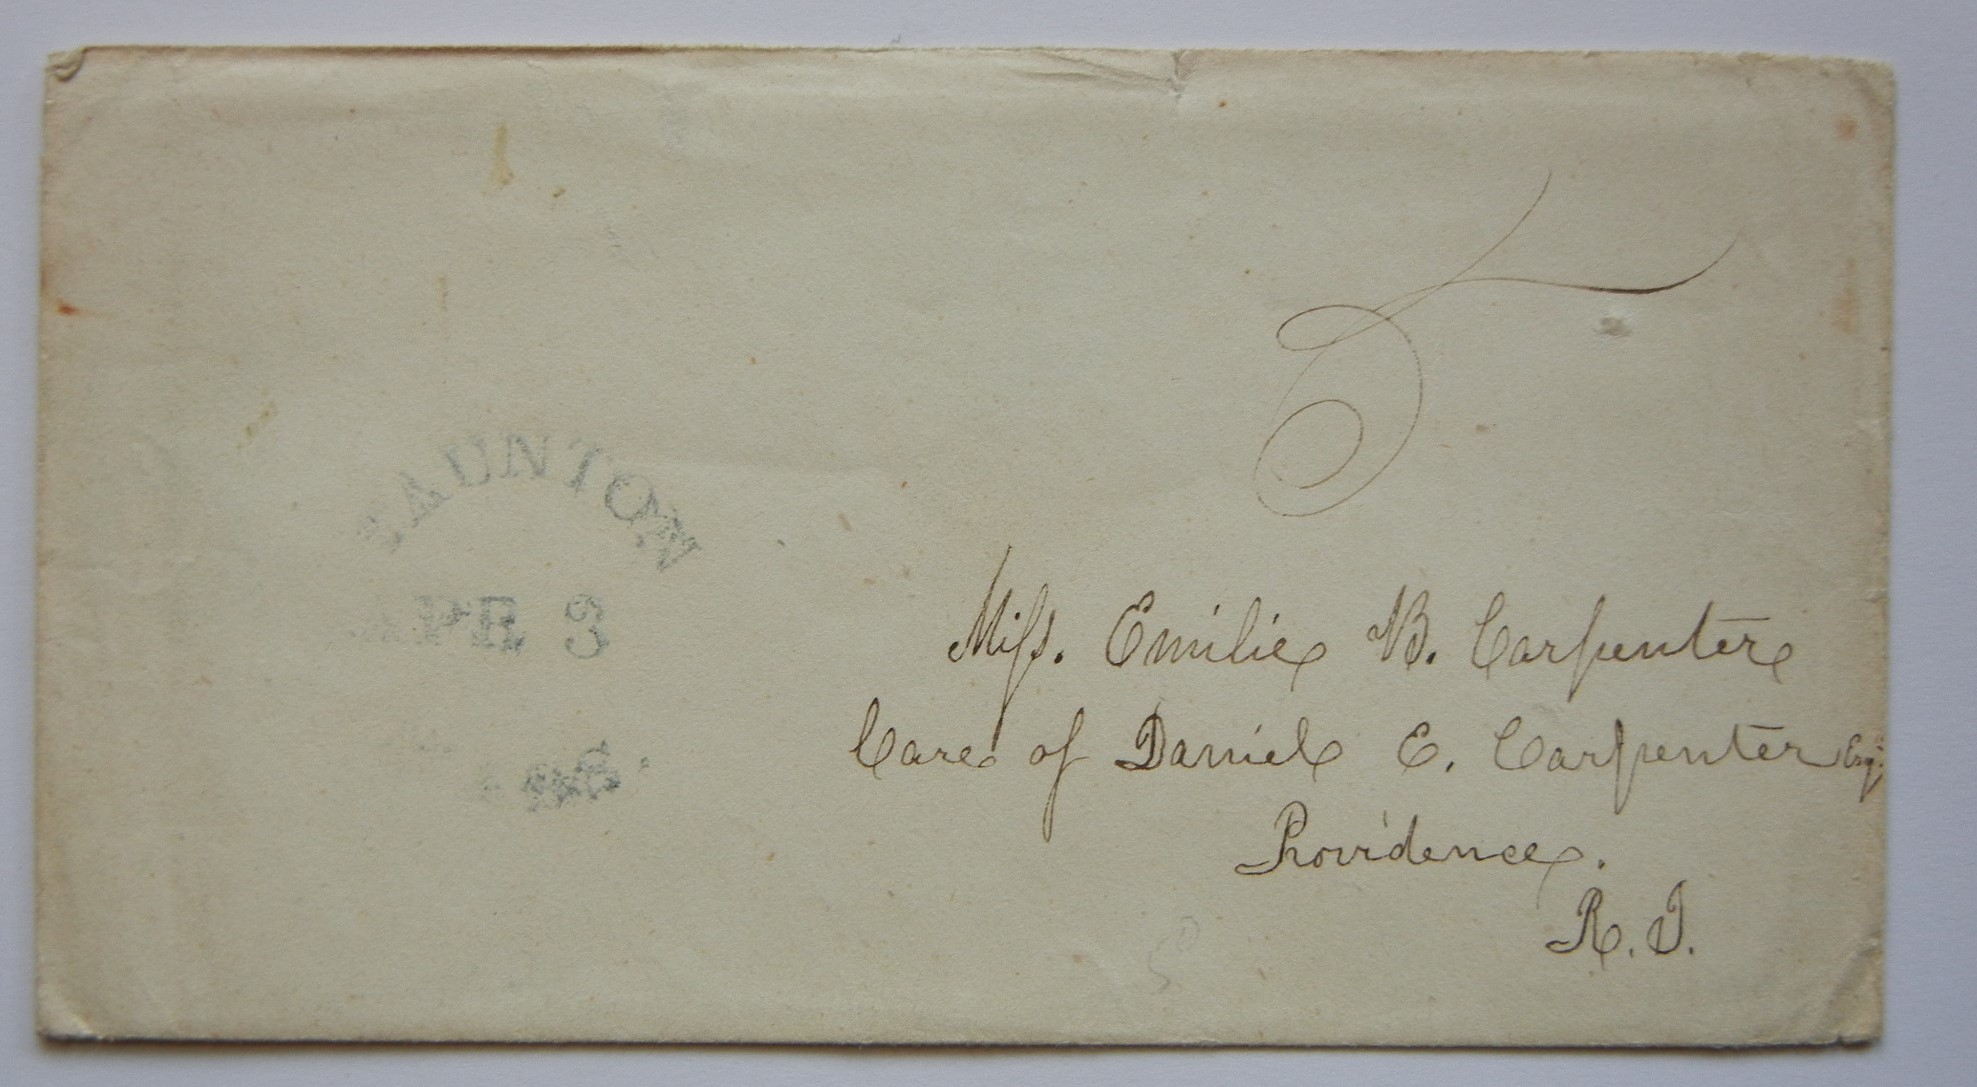 5
TAUNTON
APR 3
Ms.
Miſs. Emilie B. Carpenter
Care of Daniel E. Carpenter Esq:
Providence.
R. I.
5